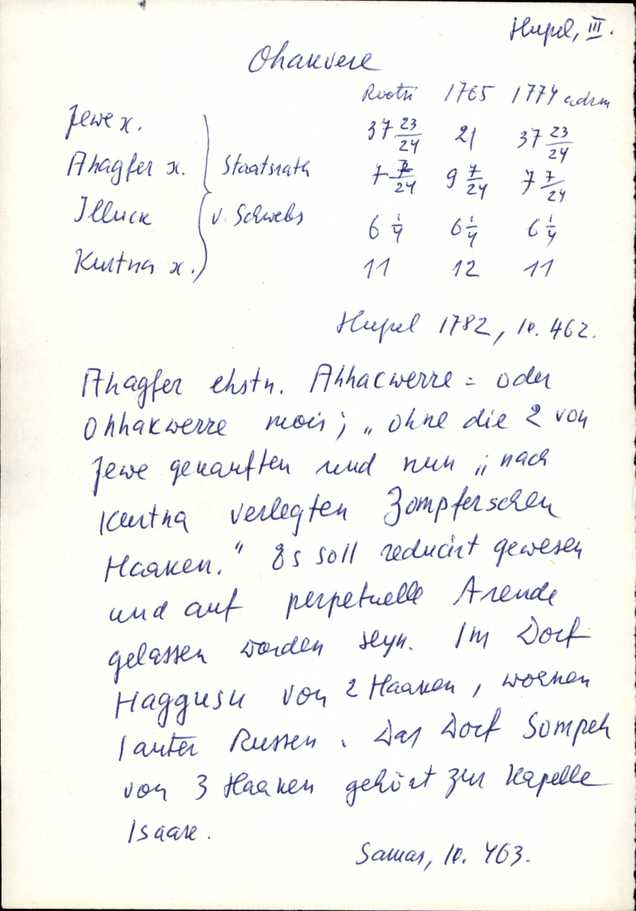 Hupel, III.
Ohakvere
Rootsi 1765 1774 adrm
Jewe x. 37 23/24 21 37 23/24
Ahagfer x. Staatsrath 7 7/24 9 7/24 7 7/24
Illuck v. Schwebs 6 1/4 6 1/4 6 1/4
Kurtna x. 11 12 11
Hupel 1782, lk. 462.
Ahagfer ehstn. Ahhacwerre = oder
Ohhakwerre mois; „ohne die 2 von
Jewe gekauften und nun „nach
Kurtna verlegten Zompferschen
Haaken.“ Es soll reducirt gewesen
und auf perpetuelle Arende
gelassen worden seyn. Im Dorf
Haggusu von 2 Haaken, wohnen
lauter Russen. Das Dorf Sompeh
von 3 Haaken gehört zur Kapelle
Isaak.
Samas, lk. 463.